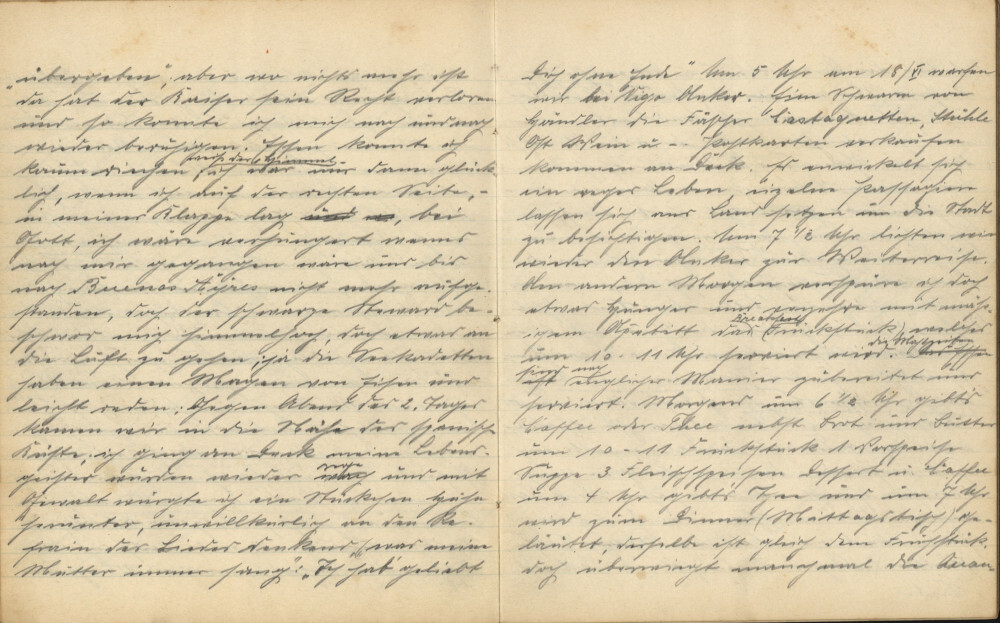 „übergeben“, aber wo nichts mehr ist
da hat der Kaiser sein Recht verloren
und so konnte ich mich nach und nach
wieder beruhigen. Essen konnte ich
preis der Himmel
kaum riechen, ich war nur dann glück
lich, wenn ich auf der rechten Seite,-
in meiner Klappe lag, bei
Gott, ich wäre verhungert wenns
nach mir gegangen wäre und bis
nach Buenos Ayres nicht mehr aufge-
standen, doch der schwarze Steward be-
schwor mich himmelhoch, doch etwas an
die Luft zu gehen, ja die Seekadetten
haben einen Magen von Eisen und
leicht reden; Gegen Abend des 2. Tages
kamen wir in die Nähe der spanisch
Küste, ich ging an Deck meine Lebens-
geister wurden wieder rege und mit
Gewalt würgte ich ein Stückchen Huhn
herunter, unwillkürlich an den Re-
frain des Liedes denkend, (was meine
Mutter immer sang: „Ich hab geliebt
Dich ohne Ende“ Um 5 Uhr am 18/VI warfen
wir bei Vigo Anker. Eine Schwarm von
Händler die Fäscher Castagnetten, Stühle
Obst Wein u -- Postkarten verkaufen
kommen an Deck. Es entwickelt sich
ein reges Leben, einzelne Passagiere
lassen sich ans Land setzen um die Stadt
zu besichtigen. Um 7 1/2 Uhr lichten wir
wieder den Anker zur Weiterreise.
Am andern Morgen verspüre ich doch
etwas Hunger und verzehre mit mäs-
Breakfast
igem Apetitt das (Frühstück), welches
um 10 - 11 Uhr serviert wird. die Mahlzeiten
sind nach
englischer Manier zubereitet und
serviert. Morgens um 6 1/2 Uhr gibts
Caffee oder Thee nebst Brot und Butter
um 10 - 11 Frühstück 1 Vorspeise
Suppe 3 Fleischspeisen Dessert u. Caffee
um 4 Uhr gibts Thee und um 7 Uhr
wird zum Dinner (Mittagstisch) ge-
läutet, derselbe ist gleich dem Frühstück.
doch überwiegt manchmal die Quan-